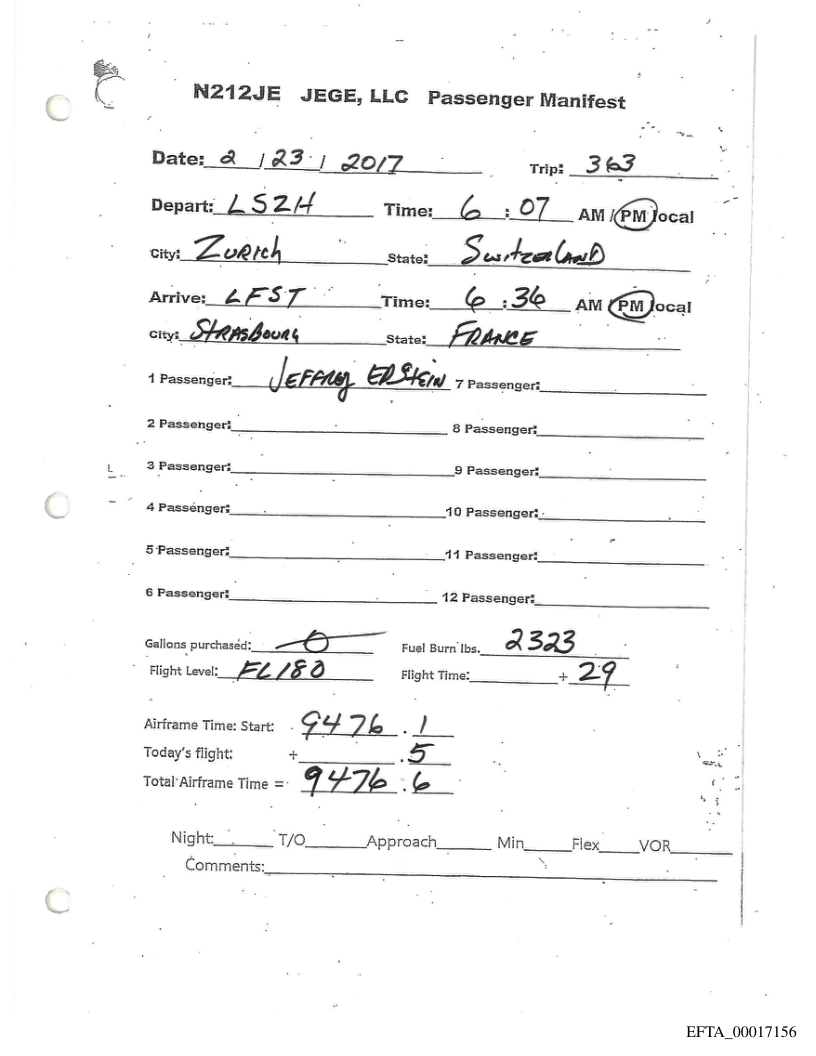 N212JE JEGE, LLC Passenger Manifest
Date: 2 / 23 / 2017 Trip: 363
Depart: LSZH Time: 6 : 07 AM / PM local
City: ZURICH State: SWITZERLAND
Arrive: LFST Time: 6 : 36 AM / PM local
City: STRASBOURG State: FRANCE
1 Passenger: JEFFREY EPSTEIN 7 Passenger:
2 Passenger: 8 Passenger:
3 Passenger: 9 Passenger:
4 Passenger: 10 Passenger:
5 Passenger: 11 Passenger:
6 Passenger: 12 Passenger:
Gallons purchased: 0 Fuel Burn lbs. 2323
Flight Level: FL180 Flight Time: + 29
Airframe Time: Start: 9476 . 1
Today's flight: + . 5
Total Airframe Time = 9476 . 6
Night: T/O Approach Min Flex VOR
Comments:
EFTA_00017156